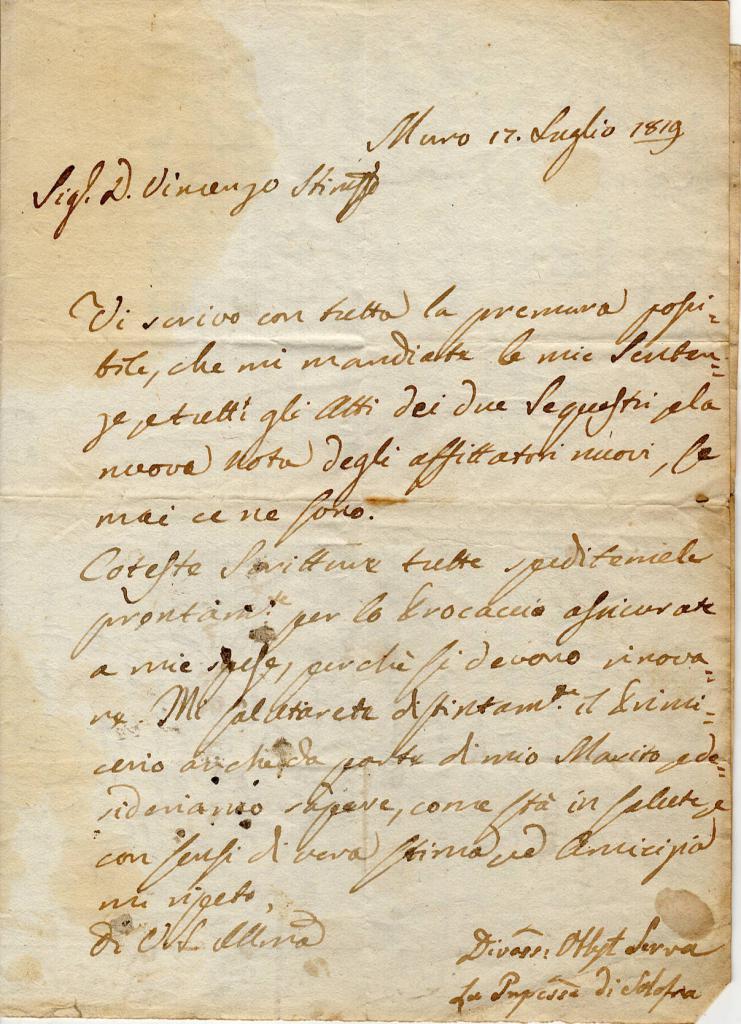 Muro 17. Luglio 1819
Sig.r D. Vincenzo
Vi scrivo con tutta la premura possi=
bile, che mi mandiate le mie Senten=
ze, e tutti gli Atti dei due Sequestri, e la
nuova nota degli affittatori nuovi, se
mai ce ne sono.
Coteste Scritture tutte speditemele
prontam.te per lo Procaccio assicurate
a mie spese, perchè si devono rinova=
re. Mi salutarete distintam.te il Primi=
cerio anche da parte di mio Marito, e de=
sideriamo sapere, come stà in salute, e
con sensi di vera stima, ed Amicizia
mi ripeto,
di V. S. Ill.ma
Divotiss: Obb.ma Serva
La Pnpessa di Solofra